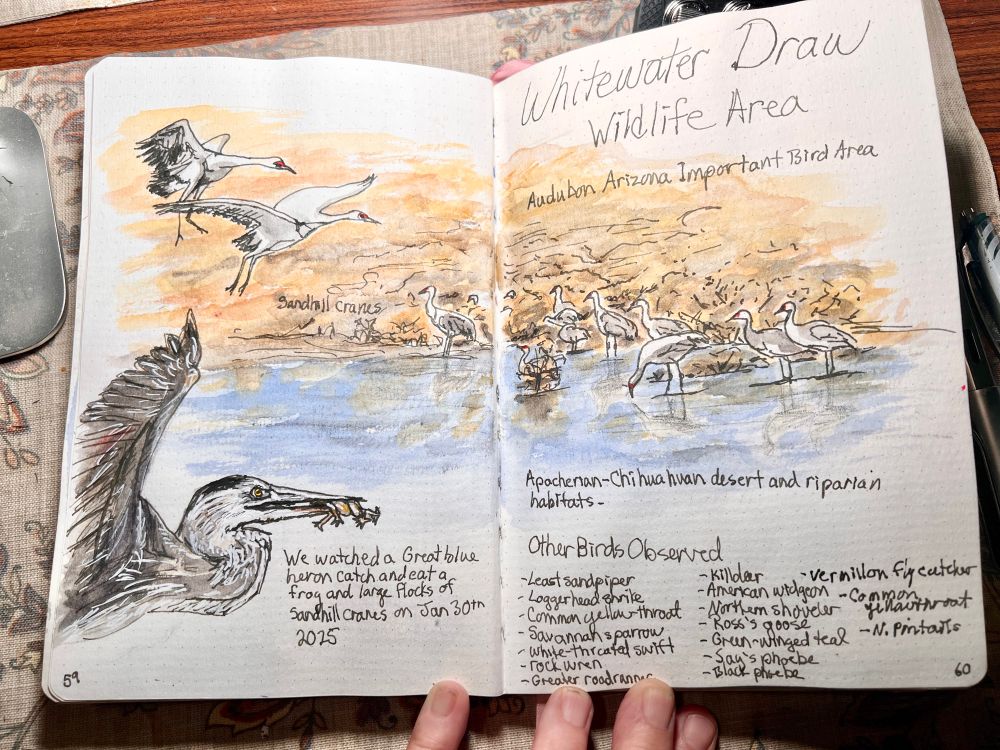 Sandhill Cranes
We watched a Great blue
heron catch and eat a
frog and large flocks of
Sandhill Cranes on Jan 30th
2025
59
Whitewater Draw
Wildlife Area
Audubon Arizona Important Bird Area
Apacherian-Chihuahuan desert and riparian
habitats-
Other Birds Observed
- Least sandpiper
- Loggerhead shrike
- Common yellow-throat
- Savannah sparrow
- white-throated swift
- rock wren
- Greater roadrunner
- Killdeer
- American widgeon
- Northern shoveler
- Ross's goose
- Green-winged teal
- Say's phoebe
- Black phoebe
- vermillon flycatcher
- Common
yellowthroat
- N. Pintails
60